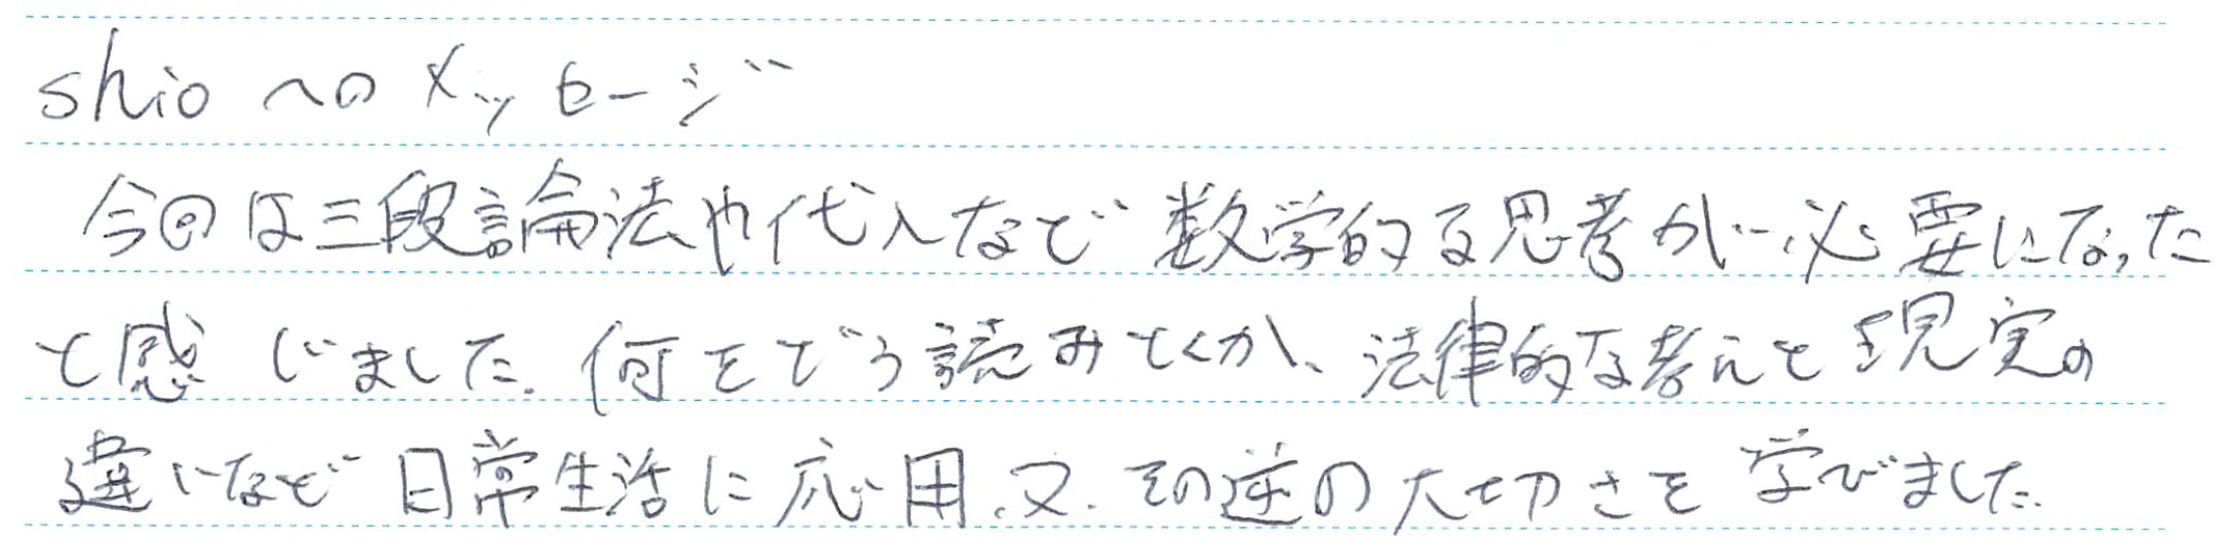 shioへのメッセージ
今回は三段論法や代入など数学的な思考が必要になった
と感じました。何をどう読みとくか、法律的な考えと現実の
違いなど日常生活に応用、又、その逆の大切さを学びました。